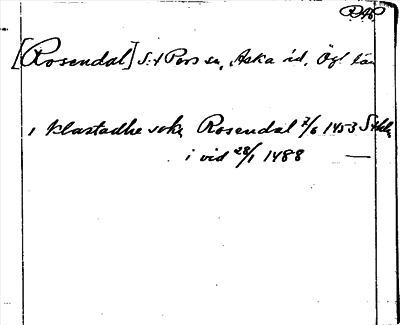 [Rosendal] S:t Pers sn, Aska hd, Ögl län
i Klastadhe sokn Rosendal 7/6 1453 Sthlm
i vid 28/1 1488 —